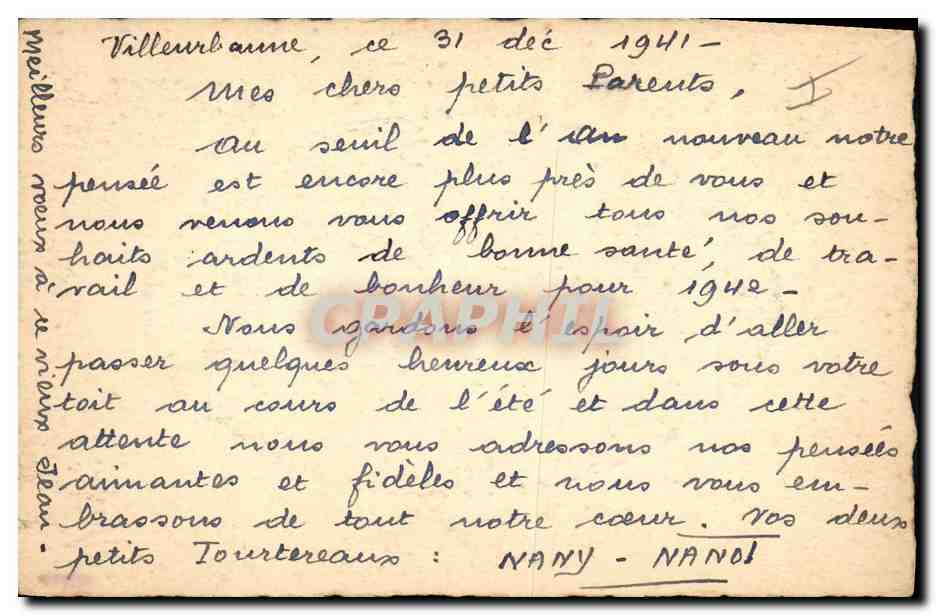 Villeurbanne, ce 31 déc 1941-
Mes chers petits Parents, I
Au seuil de l'an nouveau notre
pensée est encore plus près de vous et
nous venons vous offrir tous nos sou-
haits ardents de bonne santé, de tra-
vail et de bonheur pour 1942-
Nous gardons l'espoir d'aller
passer quelques heureux jours sous votre
toit au cours de l'été et dans cette
attente nous vous adressons nos pensées
aimantes et fidèles et nous vous em-
brassons de tout notre cœur. Vos deux
petits Tourtereaux : NANY - NANDI
Meilleurs voeux à ce vieux Jean.
CPAPHIL